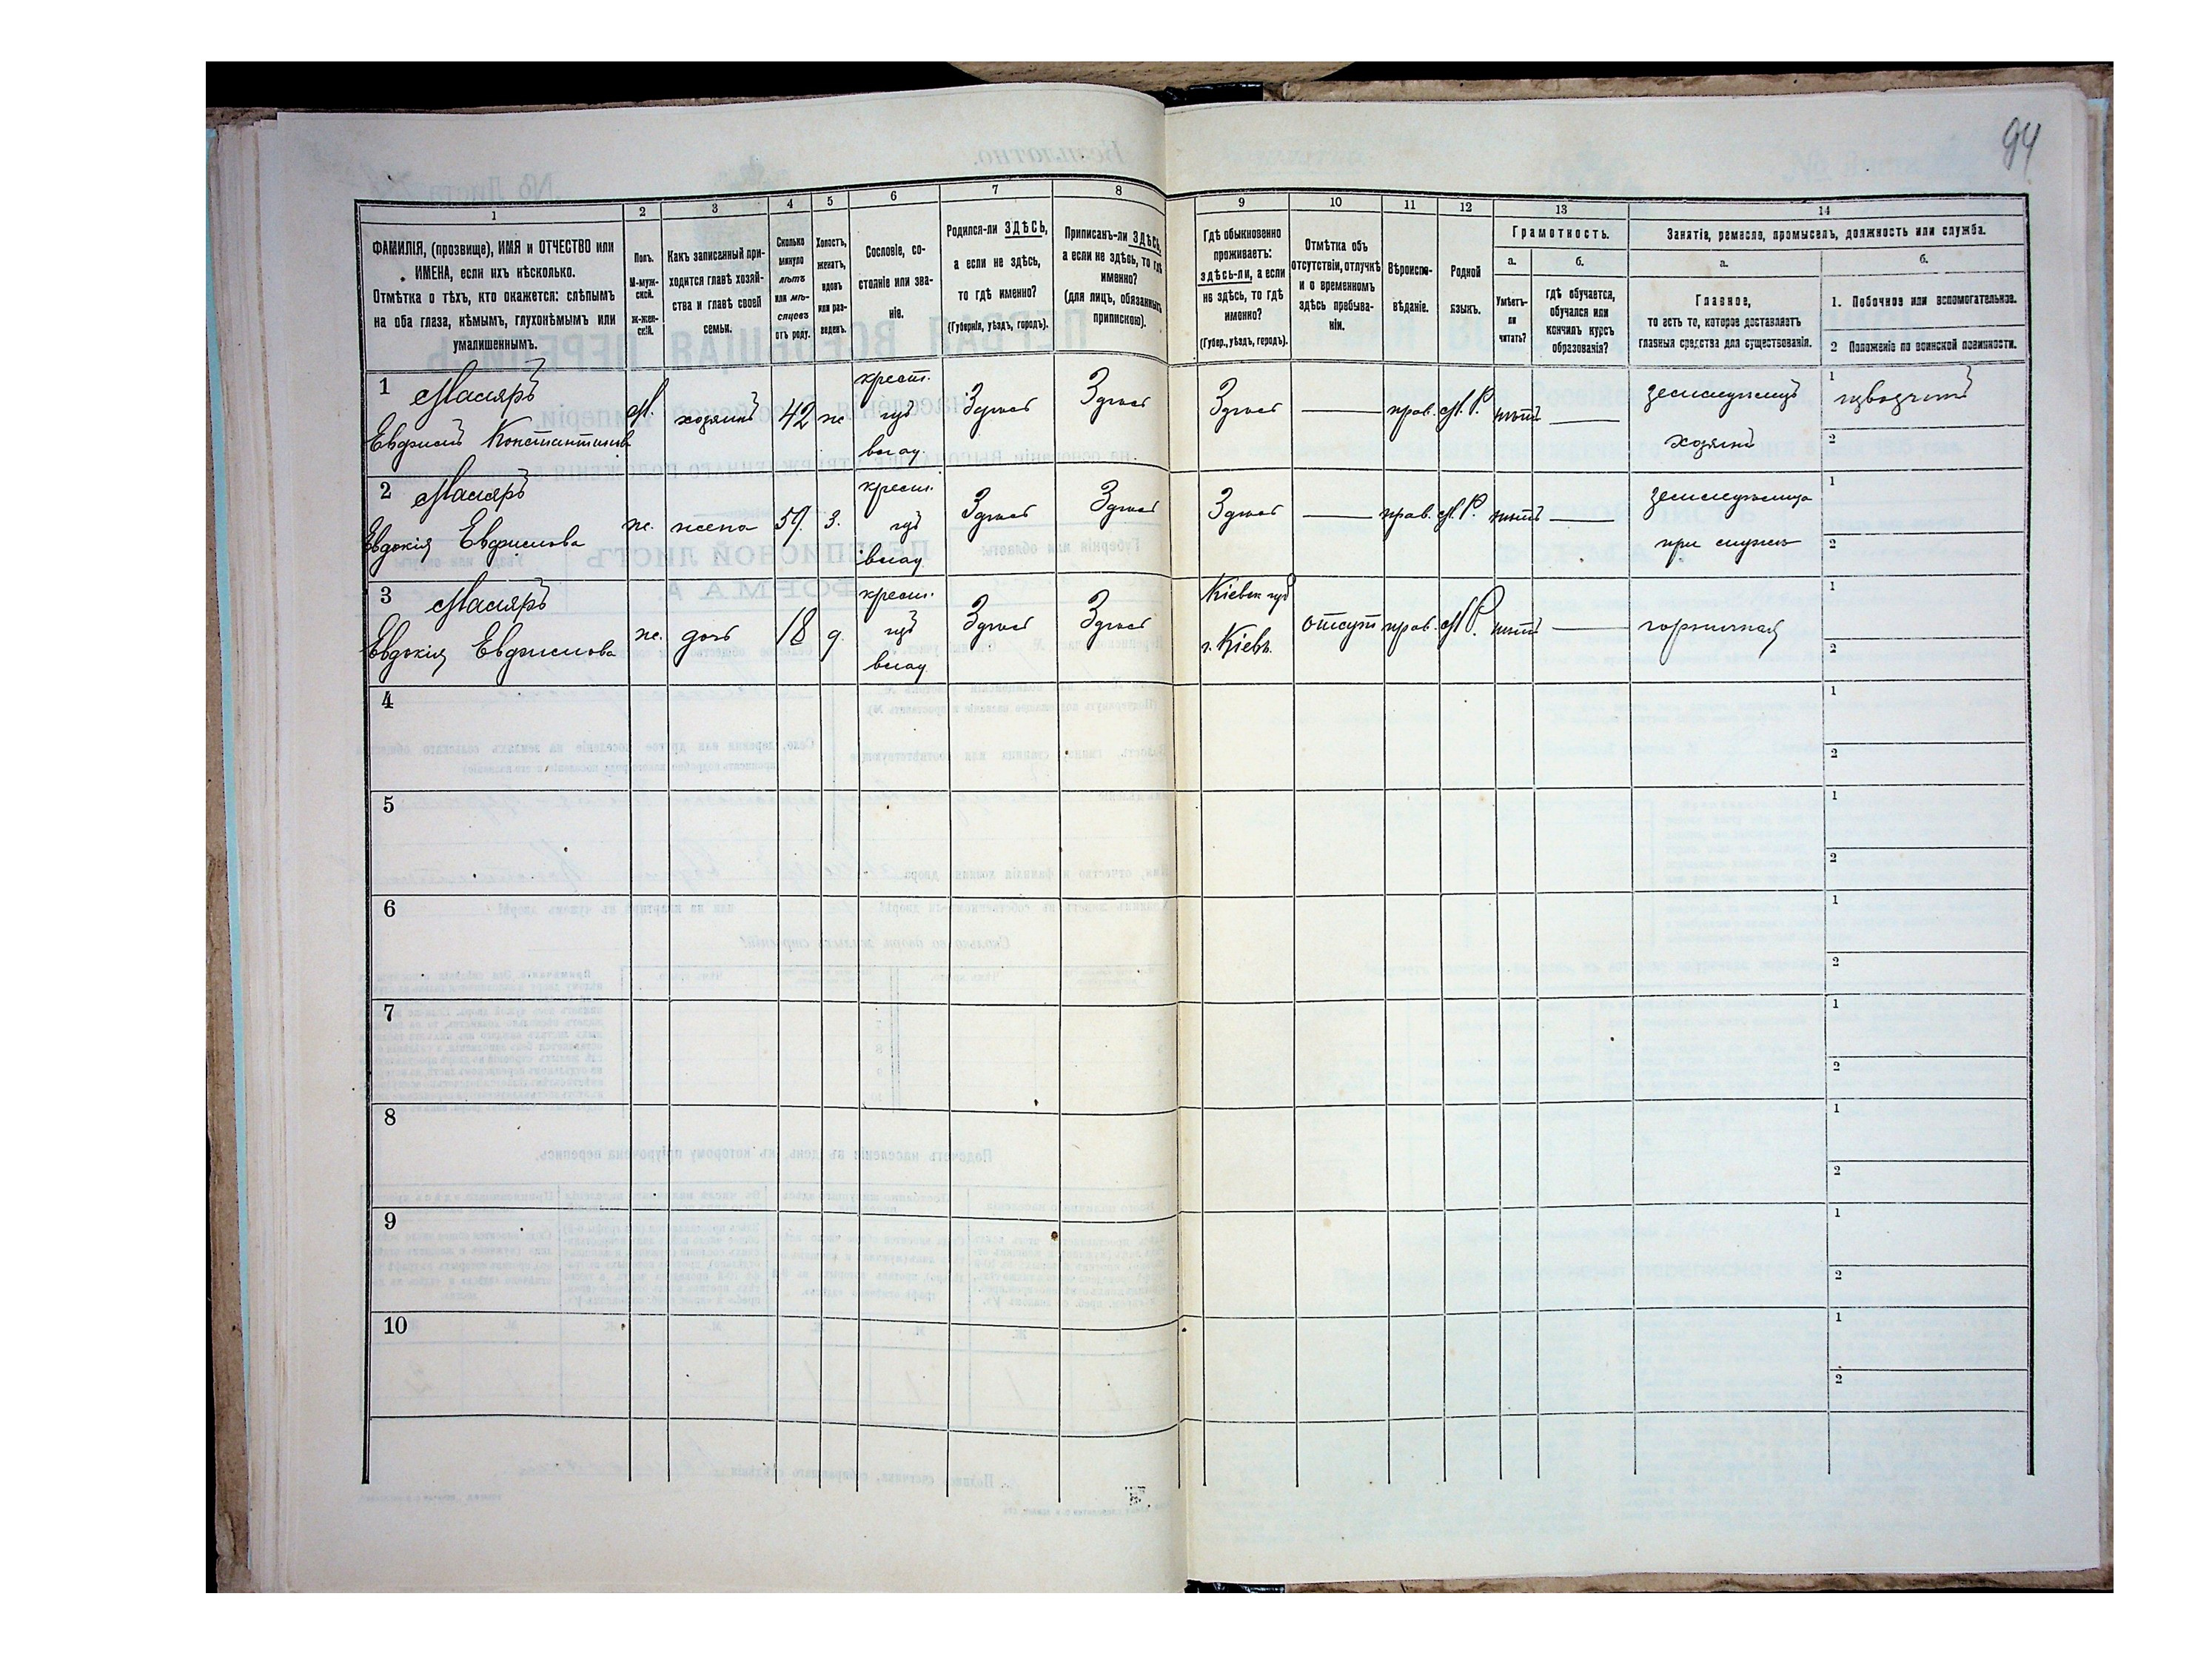 94
1 2 3 4 5 6 7 8 9 10 11 12 13 14
ФАМИЛІЯ, (прозвище), ИМЯ и ОТЧЕСТВО или
ИМЕНА, если ихъ нѣсколько.
Отмѣтка о тѣхъ, кто окажется: слѣпымъ
на оба глаза, нѣмымъ, глухонѣмымъ или
умалишеннымъ.
Полъ.
М-муж-
ской.
ж-жен-
скій.
Какъ записанный при-
ходится главѣ хозяй-
ства и главѣ своей
семьи.
Сколько
минуло
лѣтъ
или мѣ-
сяцевъ
отъ роду.
Холостъ,
женатъ,
вдовъ
или раз-
веденъ.
Сословіе, со-
стояніе или зва-
ніе.
Родился-ли ЗДѢСЬ,
а если не здѣсь,
то гдѣ именно?
(Губернія, уѣздъ, городъ).
Приписанъ-ли ЗДѢСЬ,
а если не здѣсь, то гдѣ
именно?
(для лицъ, обязанныхъ
припискою).
Гдѣ обыкновенно
проживаетъ:
здѣсь-ли, а если
не здѣсь, то гдѣ
именно?
(Губер., уѣздъ, городъ).
Отмѣтка объ
отсутствіи, отлучкѣ
и о временномъ
здѣсь пребыва-
ніи.
Вѣроиспо-
вѣданіе.
Родной
языкъ.
Грамотность.
а.
Умѣетъ-
ли
читать?
б.
гдѣ обучается,
обучался или
кончилъ курсъ
образованія?
Занятіе, ремесло, промыселъ, должность или служба.
а.
Главное,
то есть то, которое доставляетъ
главныя средства для существованія.
б.
1. Побочное или вспомогательное.
2 Положеніе по воинской повинности.
1 Маляръ
Евфимъ Константиновъ
М. хозяинъ 42 ж
крест.
влад.
Здѣсь Здѣсь Здѣсь — прав. М.Р. нѣтъ —
земледѣлецъ
хозяинъ
1 извозчикъ
2
2 Маляръ
Евдокія Евфимова
ж. жена 3.
крест.
влад.
Здѣсь Здѣсь Здѣсь — прав. М.Р. нѣтъ —
земледѣлица
при мужѣ
1
2
3 Маляръ
Евдокія Евфимова
ж. дочь 18 д.
крест.
влад.
Здѣсь Здѣсь
Кіевск губ
г. Кіевъ.
отсут прав. М.Р. нѣтъ —
горничная
1
2
4 1
2
5 1
2
6 1
2
7 1
2
8 1
2
9 1
2
10 1
2